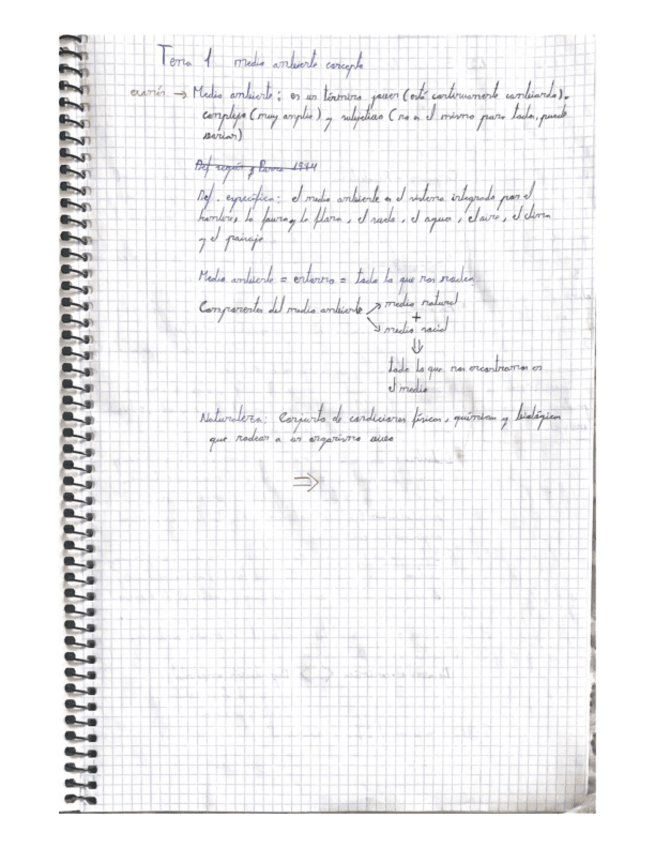 Tema 1 medio ambiente concepto
examen → Medio ambiente: es un término joven (está continuamente cambiando),
complejo (muy amplio) y subjetivo (no es el mismo para todos, puede
variar)
Def. específica: el medio ambiente es el sistema integrado por el
hombre, la fauna y la flora, el suelo, el agua, el aire, el clima
y el paisaje
Medio ambiente = entorno = todo lo que nos rodea
Componentes del medio ambiente ↗ medio natural
+
↘ medio social
⇓
todo lo que nos encontramos en
el medio
Naturaleza: Conjunto de condiciones físicas, químicas y biológicas
que rodean a un organismo vivo
⇒